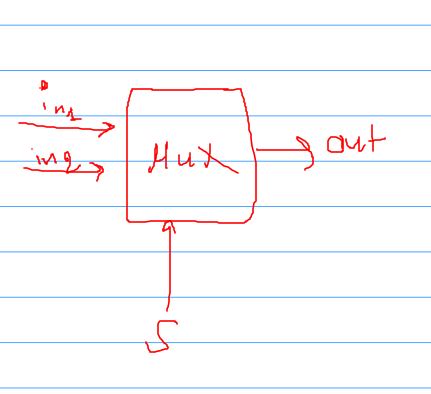 in1
in2
Mux
out
S